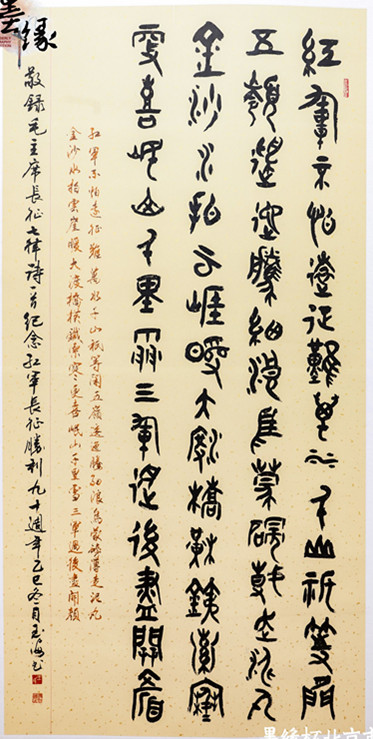 紅軍不怕遠征難萬水千山祇等閒
五嶺逶迤騰細浪烏蒙磅礴走泥丸
金沙水拍雲崖暖大渡橋橫鐵索寒
更喜岷山千里雪三軍過後盡開顏
紅軍不怕遠征難萬水千山祇等閒五嶺逶迤騰細浪烏蒙磅礴走泥丸
金沙水拍雲崖暖大渡橋橫鐵索寒更喜岷山千里雪三軍過後盡開顏
敬錄毛主席長征七律詩一首紀念紅軍長征勝利九十週年乙巳冬月玉海書
墨緣
墨緣杯北京市